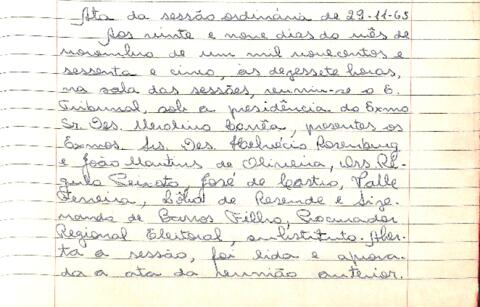 Ata da sessão ordinária de 29-11-65
Aos vinte e nove dias do mês de
novembro de um mil novecentos e
sessenta e cinco, às dezessete horas,
na sala das sessões, reuniu-se o E.
Tribunal, sob a presidência do Exmo
Sr. Des. Merolino Corrêa, presentes os
Exmos. Srs. Des. Helvécio Rosenburg
e João Martins de Oliveira, Drs. Ré-
gulo Peixoto, José de Castro, Valle
Ferreira, de Resende e Size-
nando de Barros Filho, Procurador
Regional Eleitoral, substituto. Aber-
ta a sessão, foi lida e aprova-
da a ata da reunião anterior.